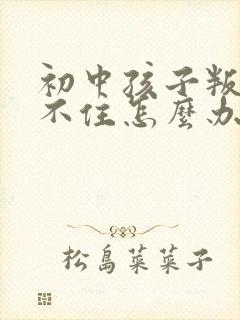 初中孩子叛
不住怎麼办
松島菜菜子